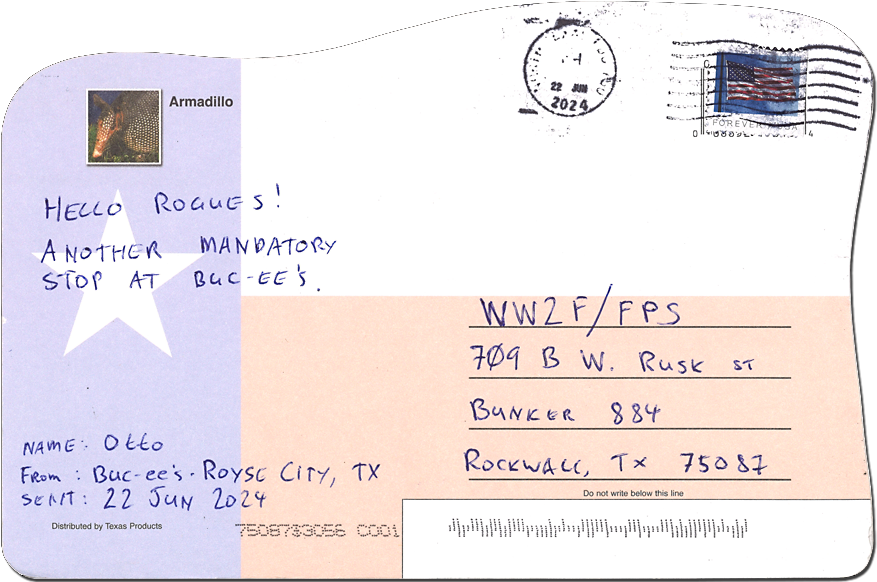 Armadillo
22 JUN
2024
FOREVER / USA
HELLO ROGUES!
ANOTHER MANDATORY
STOP AT BUC-EE'S.
WW2F/FPS
709 B W. RUSK ST
BUNKER 884
ROCKWALL, TX 75087
NAME: Otto
FROM: BUC-ee's - ROYSE CITY, TX
SENT: 22 JUN 2024
Do not write below this line
Distributed by Texas Products
75087$3056 C001